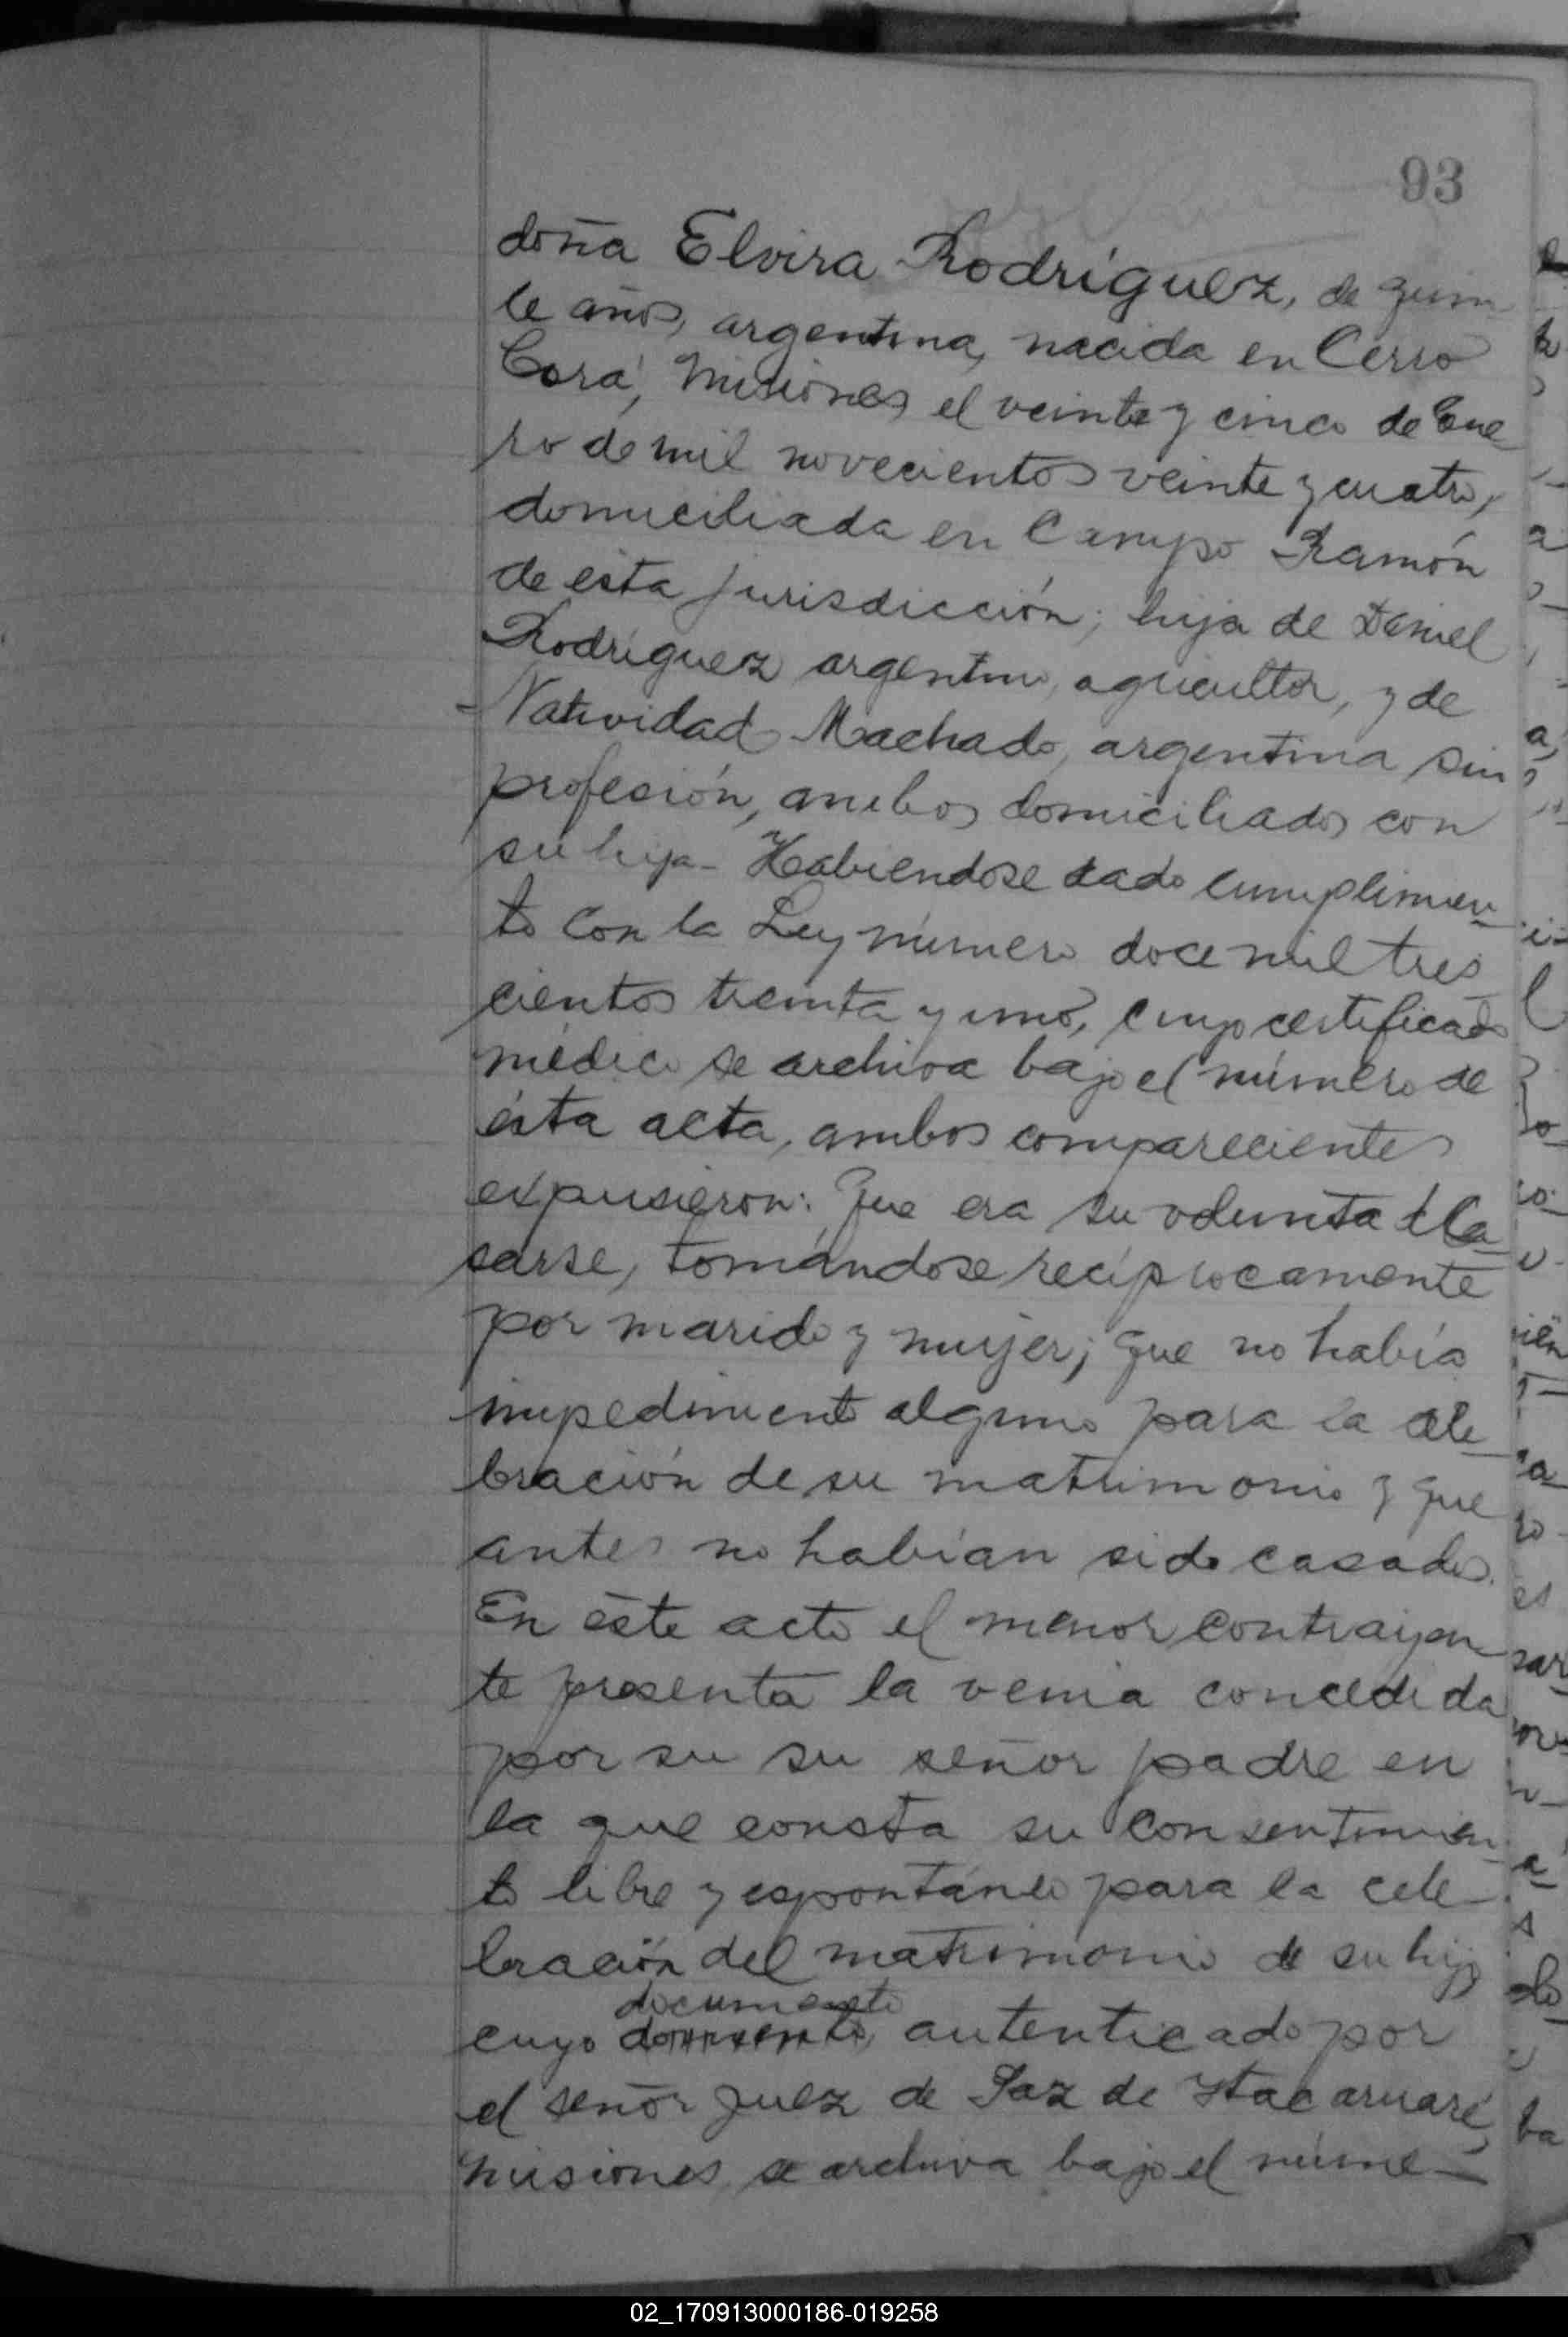 93
doña Elvira Rodríguez, de quin
ce años, argentina, nacida en Cerro
Corá, Misiones el veinte y cinco de Ene
ro de mil novecientos veinte y cuatro,
domiciliada en Campo Ramón
de ésta jurisdicción; hija de Daniel
Rodríguez argentino, agricultor, y de
Natividad Machado, argentina sin
profesión, ambos domiciliados con
su hija - Habiendose dado cumplimien-
to con la Ley número doce mil tres
cientos treinta y uno, cuyo certificado
médico se archiva bajo el número de
ésta acta, ambos comparecientes
expusieron: Que era su voluntad ca-
sarse, tomándose recíprocamente
por marido y mujer; que no había
impedimento alguno para la cele-
bración de su matrimonio y que
antes no habían sido casados.
En éste acto el menor contrayen
te presenta la venia concedida
por su su señor padre en
la que consta su consentimien-
to libre y espontáneo para la cele-
bración del matrimonio de su hijo
documento
cuyo autenticado por
el señor Juez de Paz de Itacaruaré,
Misiones, se archiva bajo el núme-
02_170913000186-019258